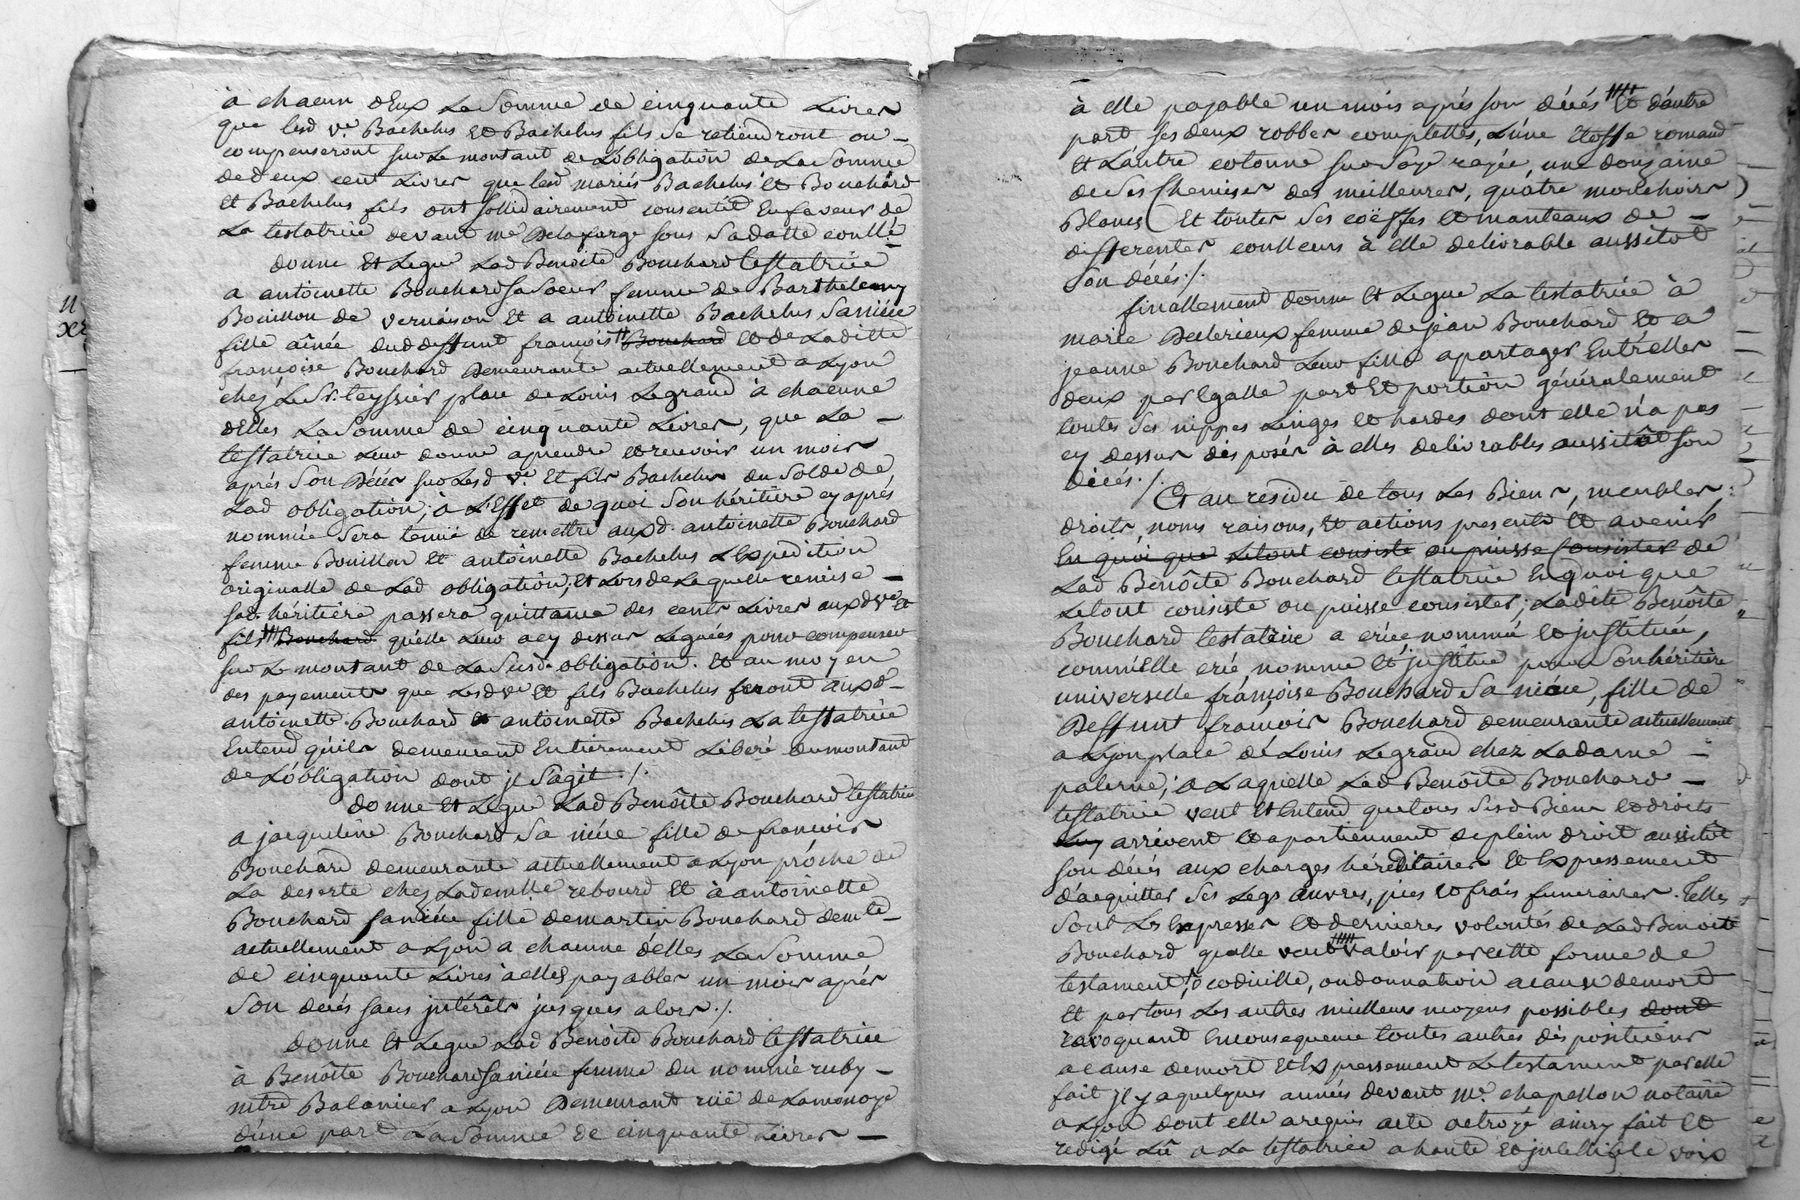 à chacun d'Eux La Somme de cinquante Livres
que lesd ve. Bachelus Et Bachelus fils Se retiendront ou
compenseront sur Le montant de L'obligation de La Somme
de deux cent Livres que lesd mariés Bachelus et Bouchard
et Bachelus fils ont sollidairement consentit En faveur de
La testatrice devant me. Delaforge sous Sa datte
donne Et Legue Lad Benoite Bouchard testatrice
a antoinette Bouchard Sa Soeur femme de Barthelemy
Bouillon de vernaison Et a antoinette Bachelus Sa niéce
fille aînée dud deffunt françois Bouchard et de Laditte
françoise Bouchard Demeurante actuellement a Lyon
chéz Le Sr. teyssier place de Louis Legrand à chacune
d'Elles La Somme de cinquante Livres, que La
testatrice Leur donne aprendre et recevoir un mois
aprés Son Décés sur Lesd ve. Et fils Bachelus du Solde de
Lad obligation; à L'Effet de quoi Son héritière cy aprés
nommée Sera tenue de remettre auxd. antoinette Bouchard
femme Bouillon Et antoinette Bachelus L'Expédition
originalle de Lad obligation; Et Lors de Laquelle remise
Sad. héritière passera quittance des cents Livres auxd ve Et
fils Bouchard qu'elle Leur a cy dessus Legués pour compenser
sur Le montant de La Susd. obligation. Et au moyen
des payements que Lesd ve Et fils Bachelus feront auxd
antoinette Bouchard et antoinette Bachelus La testatrice
Entend qu'ils demeurent Entiérement Libéré du montant
de L'obligation dont jl S'agit ./.
donne Et Legue Lad Benôite Bouchard testatrice
a jacqueline Bouchard Sa niéce fille de francois
Bouchard demeurante actuellement a Lyon próche de
La deserte chez Lademlle rebourd Et à antoinette
Bouchard sa niéce fille de martin Bouchard demte
actuellement a Lyon a chacune d'elles La Somme
de cinquante Livres à elles payables un mois aprés
Son decés sans jntérêts jusques alors ./.
donne Et Legue Lad Benoite Bouchard testatrice
à Benôite Bouchard Sa niéce femme du nommé ruby
mtre Balancier a Lyon Demeurant rüe de Lamonoye
d'une part La Somme de cinquante Livres
à elle payable un mois aprés son décés Et d'autre
part ses deux robbes complettes, L'une Etoffe romand
Et L'autre cotonne sur Soye rayée, une douzaine
de Ses Chemises des meilleures, quatre mouchoirs
Blancs Et toutes Ses coëffes et manteaux de
differentes coulleurs à elle delivrable aussitot
Son décés ./.
finallement donne Et Legue La testatrice à
marie Declerieux femme de jean Bouchard Et a
jeanne Bouchard Leur fille apartager Entr'elles
deux par Egalle part Et portion généralement
toutes Ses nippes Linges et hardes dont elle n'a pas
cy dessus disposés à elles delivrables aussitôt Son
décés ./.
Et au residu de tous Les Biens, meubles,
droits, noms raisons, Et actions presents Et avenir
En quoi que Letout consiste ou puisse Consister de
Lad Benôite Bouchard testatrice En quoi que
Letout consiste ou puisse consister; Ladite Benôite
Bouchard testatrice a créée nommée et jnstituée,
comm'Elle crée, nomme Et jnstitue pour Son héritière
universelle françoise Bouchard Sa niéce, fille de
Deffunt francois Bouchard demeurante actuellement
a Lyon place de Louis Legrand chez Ladame
palerne; a Laquelle Lad Benôite Bouchard
testatrice veut Et Entend que tous Sesd Biens et droits
Luy arrivent et apartiennent de plein droit aussitôt
son décés aux charges héréditaires Et Expressement
d'acquitter Ses Legs oeuvres, pies et frais funeraires. Telles
Sont Les Expresses et dernieres volontés de Lad Benoite
Bouchard qu'elle veut valoir par cette forme de
testament, codicille, ou donnation acause de mort
Et par tous Les autres meilleurs moyens possibles dont
revoquant En consequence toutes autres dispositions
a cause demort Et Expressement Le testament par elle
fait jl y a quelques années devant me. chapellon notaire
a Lyon dont elle a requis acte octroyé ainsy fait Et
redigé Lû a La testatrice a haute et jntelligible voix